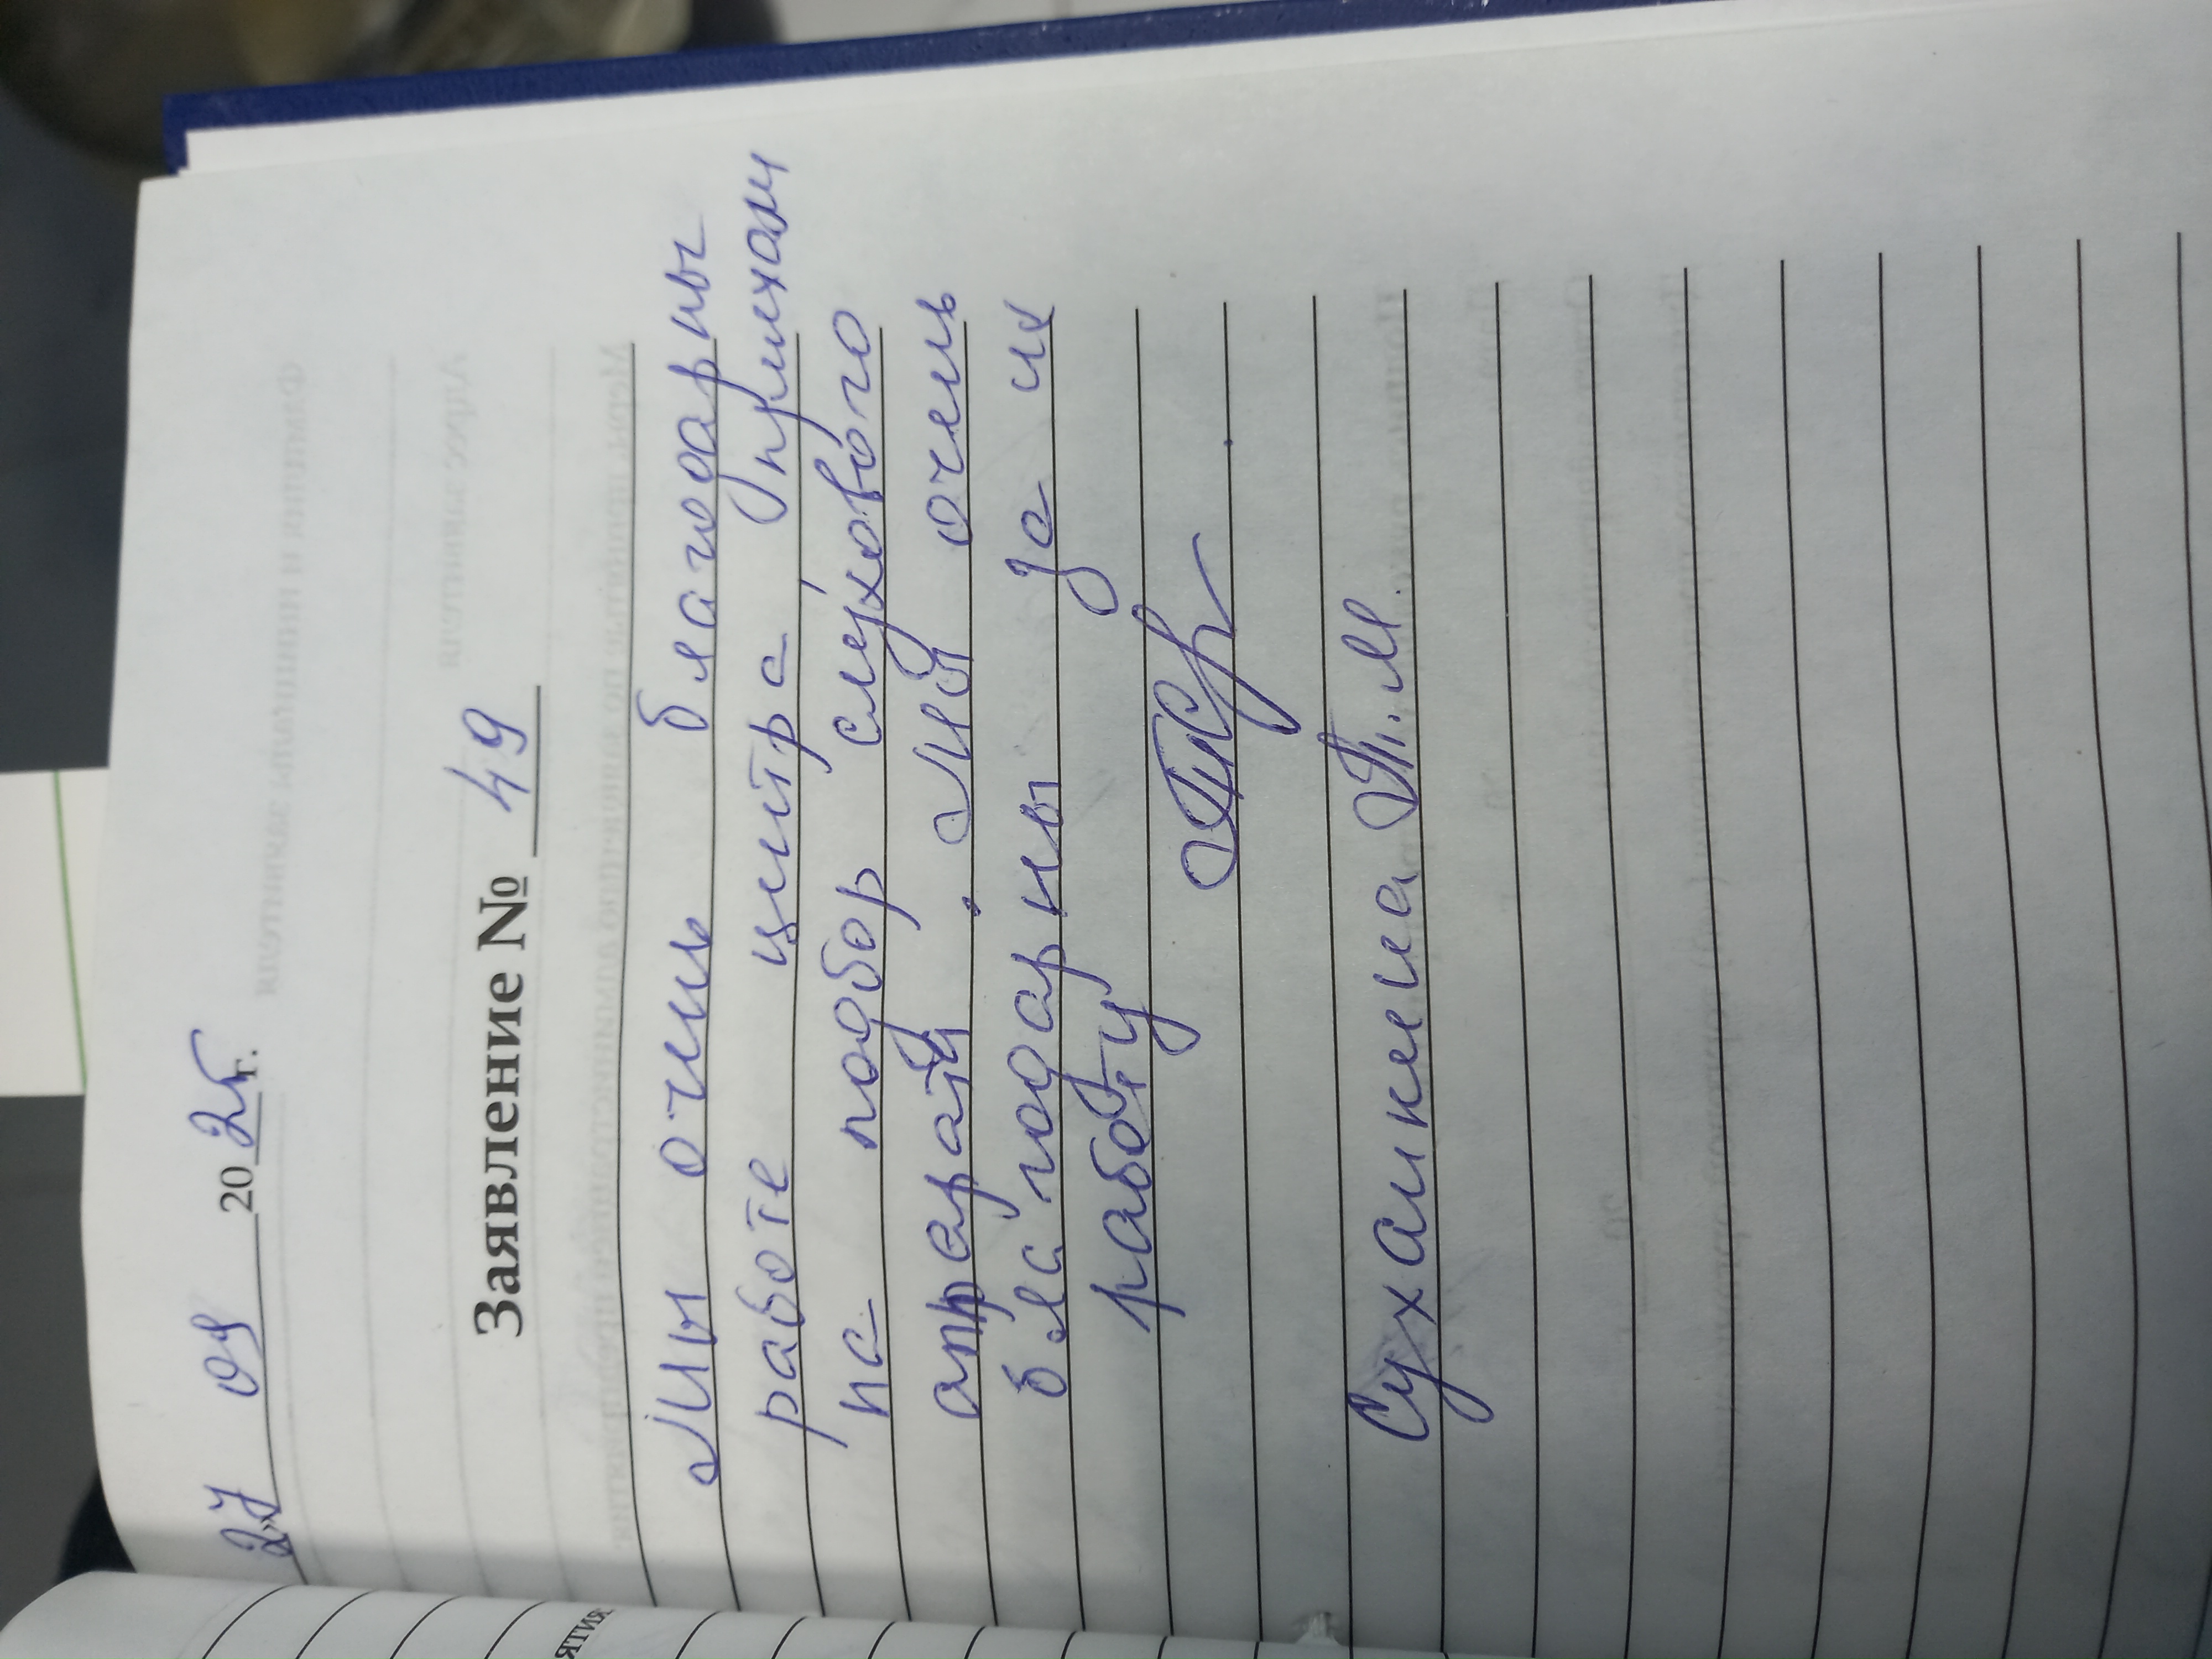 «27» 09 2025 г.
Заявление № 49
Мы очень благодарны
работе центра приехали
на подбор слухового
аппарата. Мы очень
благодарны за их
работу
Сухаинкина Т.М.